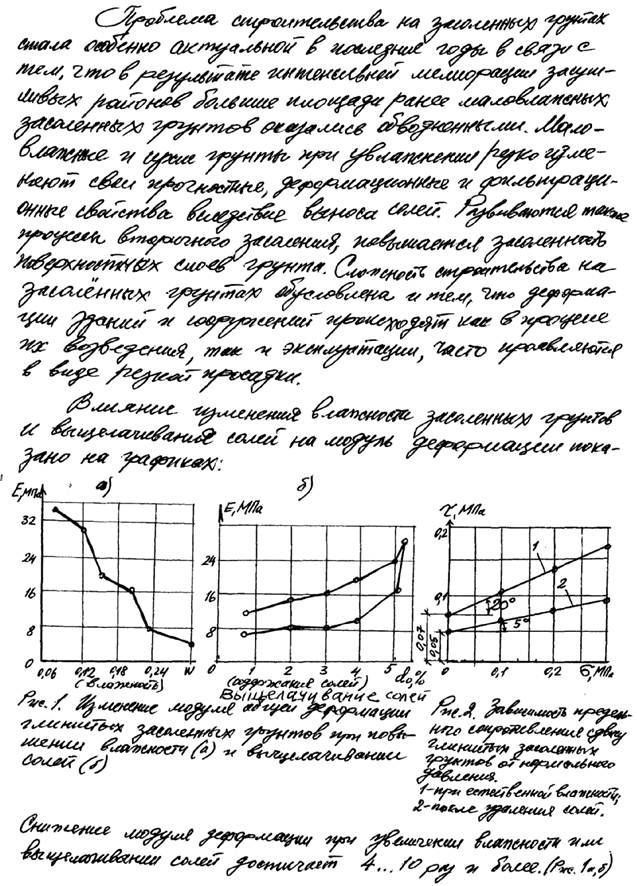 Проблема строительства на засоленных грунтах
стала особенно актуальной в последние годы в связи с
тем, что в результате интенсивной мелиорации засуш-
ливых районов большие площади ранее маловлажных
засоленных грунтов оказались обводненными. Мало-
влажные и сухие грунты при увлажнении резко изме-
няют свои прочностные, деформационные и фильтраци-
онные свойства вследствие выноса солей. Развиваются также
процессы вторичного засоления, повышается засоленность
поверхностных слоев грунта. Сложность строительства на
засолённых грунтах обусловлена и тем, что деформа-
ции зданий и сооружений происходят как в процессе
их возведения, так и эксплуатации, часто проявляются
в виде резкой просадки.
Влияние изменения влажности засоленных грунтов
и выщелачивания солей на модуль деформации пока-
зано на графиках:
E, МПа а) б) E, МПа τ, МПа
32 24 16 8
0,06 0,12 0,18 0,24 W
(влажность)
24 16 8
0 1 2 3 4 5 d0,%
(содержания солей)
Выщелачивание солей
0,2 0,1 0,07 0,05
1 2 20° 5°
0 0,1 0,2 σ, МПа
Рис. 1. Изменение модуля общей деформации
глинистых засоленных грунтов при повы-
шении влажности (а) и выщелачивании
солей (б)
Рис. 2. Зависимость предель-
ного сопротивления сдвигу
глинистых засоленных
грунтов от нормального
давления.
1-при естественной влажности;
2-после удаления солей.
Снижение модуля деформации при увеличении влажности или
выщелачивании солей достигает 4...10 раз и более. (Рис. 1а,б)